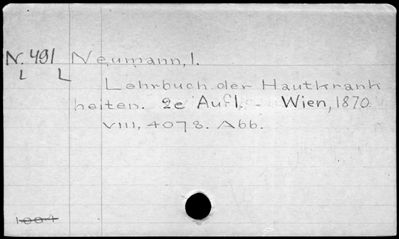 N. 491 Neumann, I.
L L
Lehrbuch der Hautkrank
heiten. 2e Aufl. - Wien, 1870.
VIII, 407 8. Abb.
1004